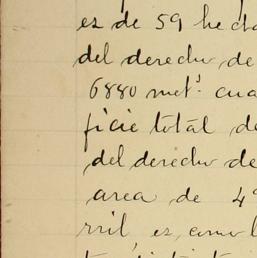 es de 59 hecta
del derecho de
6880 met.s cua
ficie total de
del derecho de
area de 4
rril es como l